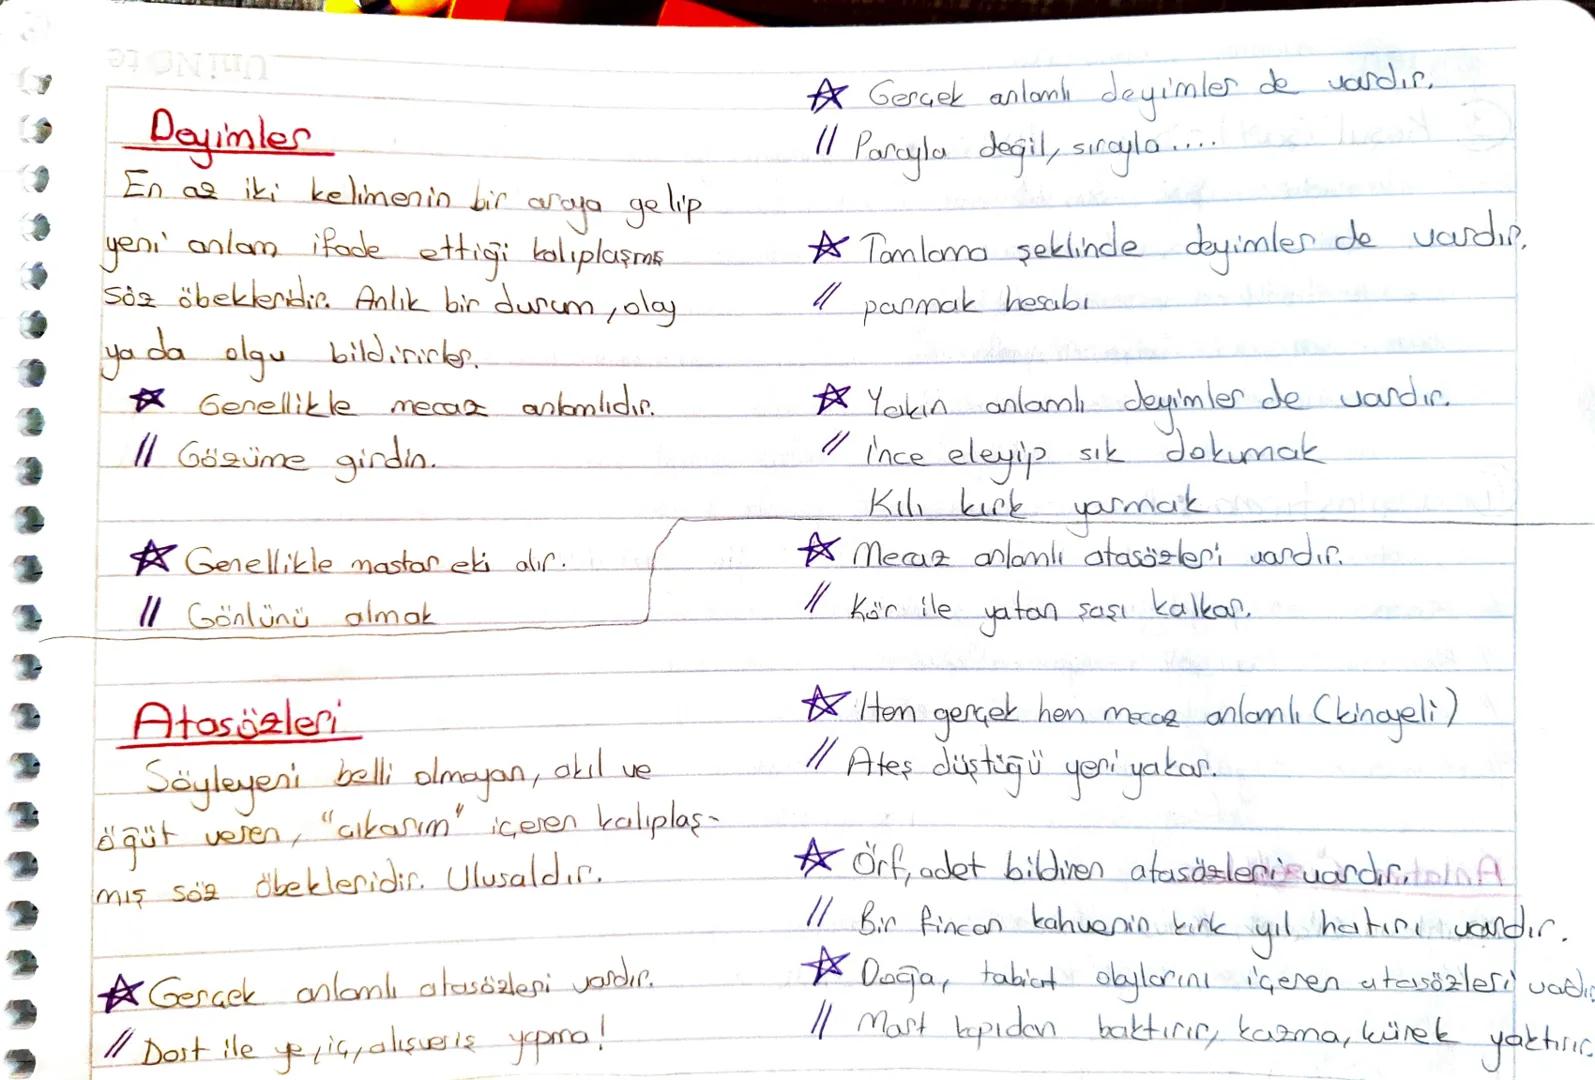 Deyimler
En az iki kelimenin bir araya gelip
yeni anlam ifade ettiği kalıplaşmış
söz öbekleridir. Anlık bir durum, olay
ya da olgu bildirirler.
☆ Genellikle mecaz anlamlıdır.
// Gözüme girdin.
☆ Genellikle mastar eki alır.
// Gönlünü almak
☆ Gerçek anlamlı deyimler de vardır.
// Parayla değil, sırayla....
☆ Tamlama şeklinde deyimler de vardır.
// parmak hesabı
☆ Yakın anlamlı deyimler de vardır.
// ince eleyip sık dokumak
Kılı kırk yarmak
Atasözleri
Söyleyeni belli olmayan, akıl ve
öğüt veren, "çıkarım" içeren kalıplaş-
mış söz öbekleridir. Ulusaldır.
☆ Gerçek anlamlı atasözleri vardır.
// Dost ile ye, iç, alışveriş yapma!
☆ Mecaz anlamlı atasözleri vardır.
// Kör ile yatan şaşı kalkar.
☆ Hem gerçek hem mecaz anlamlı (kinayeli)
// Ateş düştüğü yeri yakar.
☆ Örf, adet bildiren atasözleri vardır.
// Bir fincan kahvenin kırk yıl hatırı vardır.
☆ Doğa, tabiat olaylarını içeren atasözleri vardır
// Mart kapıdan baktırır, kazma, kürek yaktırır.
UniNOte